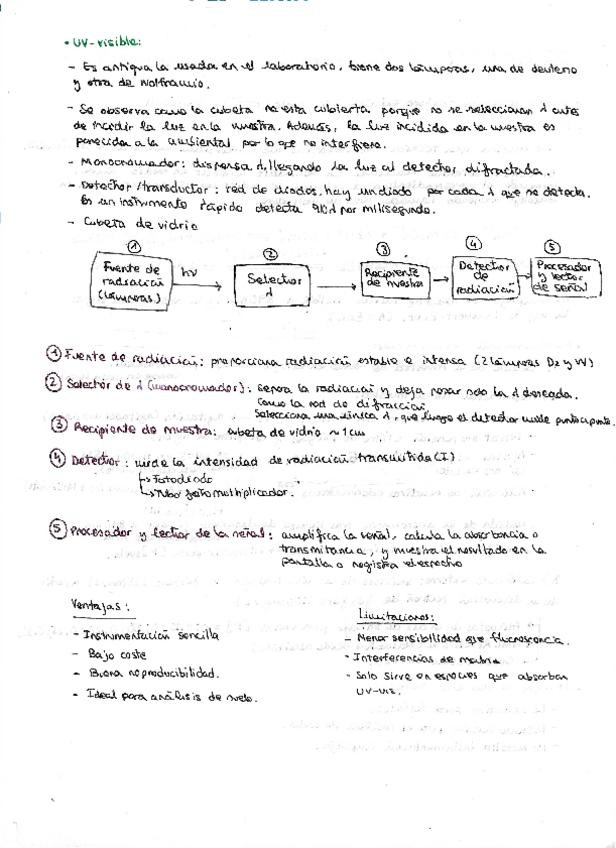 • UV-visible:
- Es antigua la usada en el laboratorio, tiene dos lámparas, una de deuterio
y otra de wolframio.
- Se observa como la cubeta no esta cubierta porque no se seleccionan λ antes
de incidir la luz en la muestra. Además, la luz incidida en la muestra es
parecida a la ambiental por lo que no interfiere.
- Monocromador: dispersa λ, llegando la luz al detector difractada.
- Detector/transductor: red de diodos, hay un diodo por cada λ que se detecta.
Es un instrumento rápido detecta λ por milisegundo.
- Cubeta de vidrio
① ② ③ ④ ⑤
Fuente de radiación (lámparas)
hν
Selector λ
Recipiente de muestra
Detector de radiación
Procesador y lector de señal
① Fuente de radiación: proporciona radiación estable e intensa (2 lámparas D₂ y W)
② Selector de λ (monocromador): separa la radiación y deja pasar solo la λ deseada.
Como la red de difracción
Selecciona una única λ, que luego el detector mide punto a punto.
③ Recipiente de muestra: cubeta de vidrio ~ 1 cm
④ Detector: mide la intensidad de radiación transmitida (I)
↳ Fotodiodo
↳ Tubo fotomultiplicador.
⑤ Procesador y lector de la señal: amplifica la señal, calcula la absorbancia o
transmitancia, y muestra el resultado en la
pantalla o registra el espectro
Ventajas:
- Instrumentación sencilla
- Bajo coste
- Buena reproducibilidad.
- Ideal para análisis de suelo.
Limitaciones:
- Menor sensibilidad que fluorescencia.
- Interferencias de matriz
- Solo sirve en especies que absorban
UV-vis.